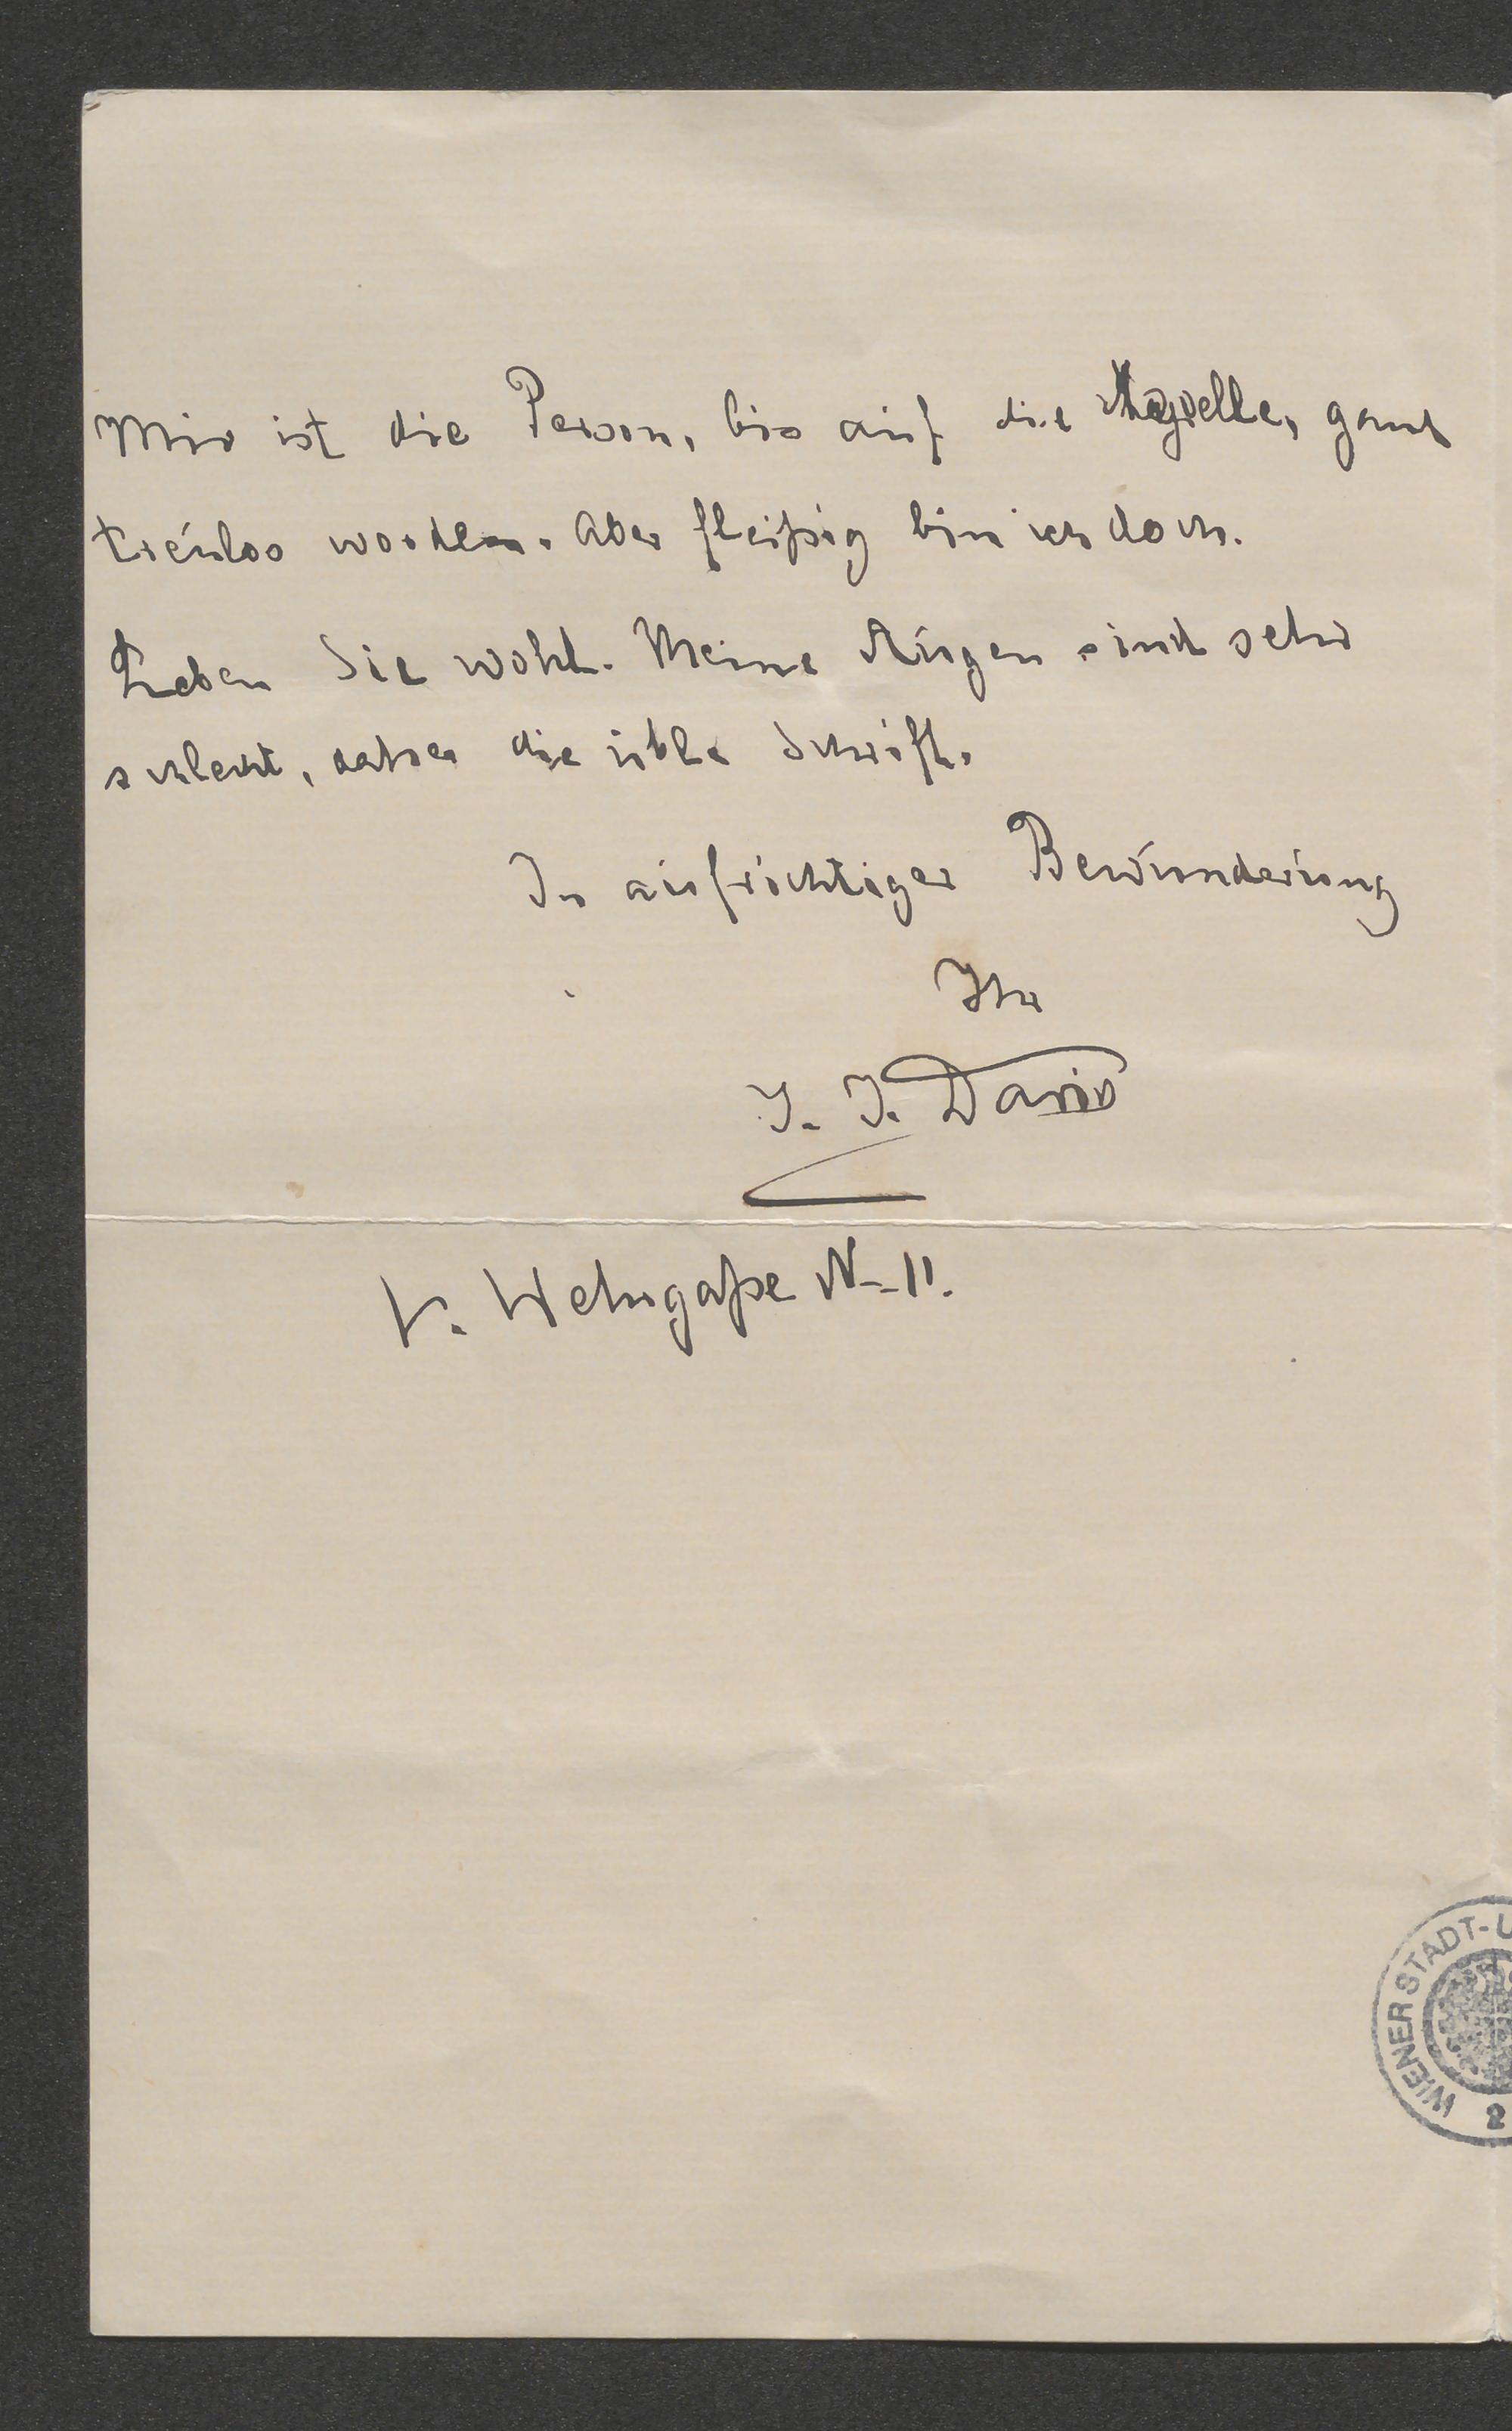 Mir ist die Person, bis auf die Novelle, ganz
treulos worden. Aber fleißig bin ich doch.
Leben Sie wohl. Meine Augen sind sehr
schlecht, daher die üble Schrift.
In aufrichtiger Bewunderung
Ihr
J. J. David
V. Wehrgaße N- 11.
WIENER STADT-U
2